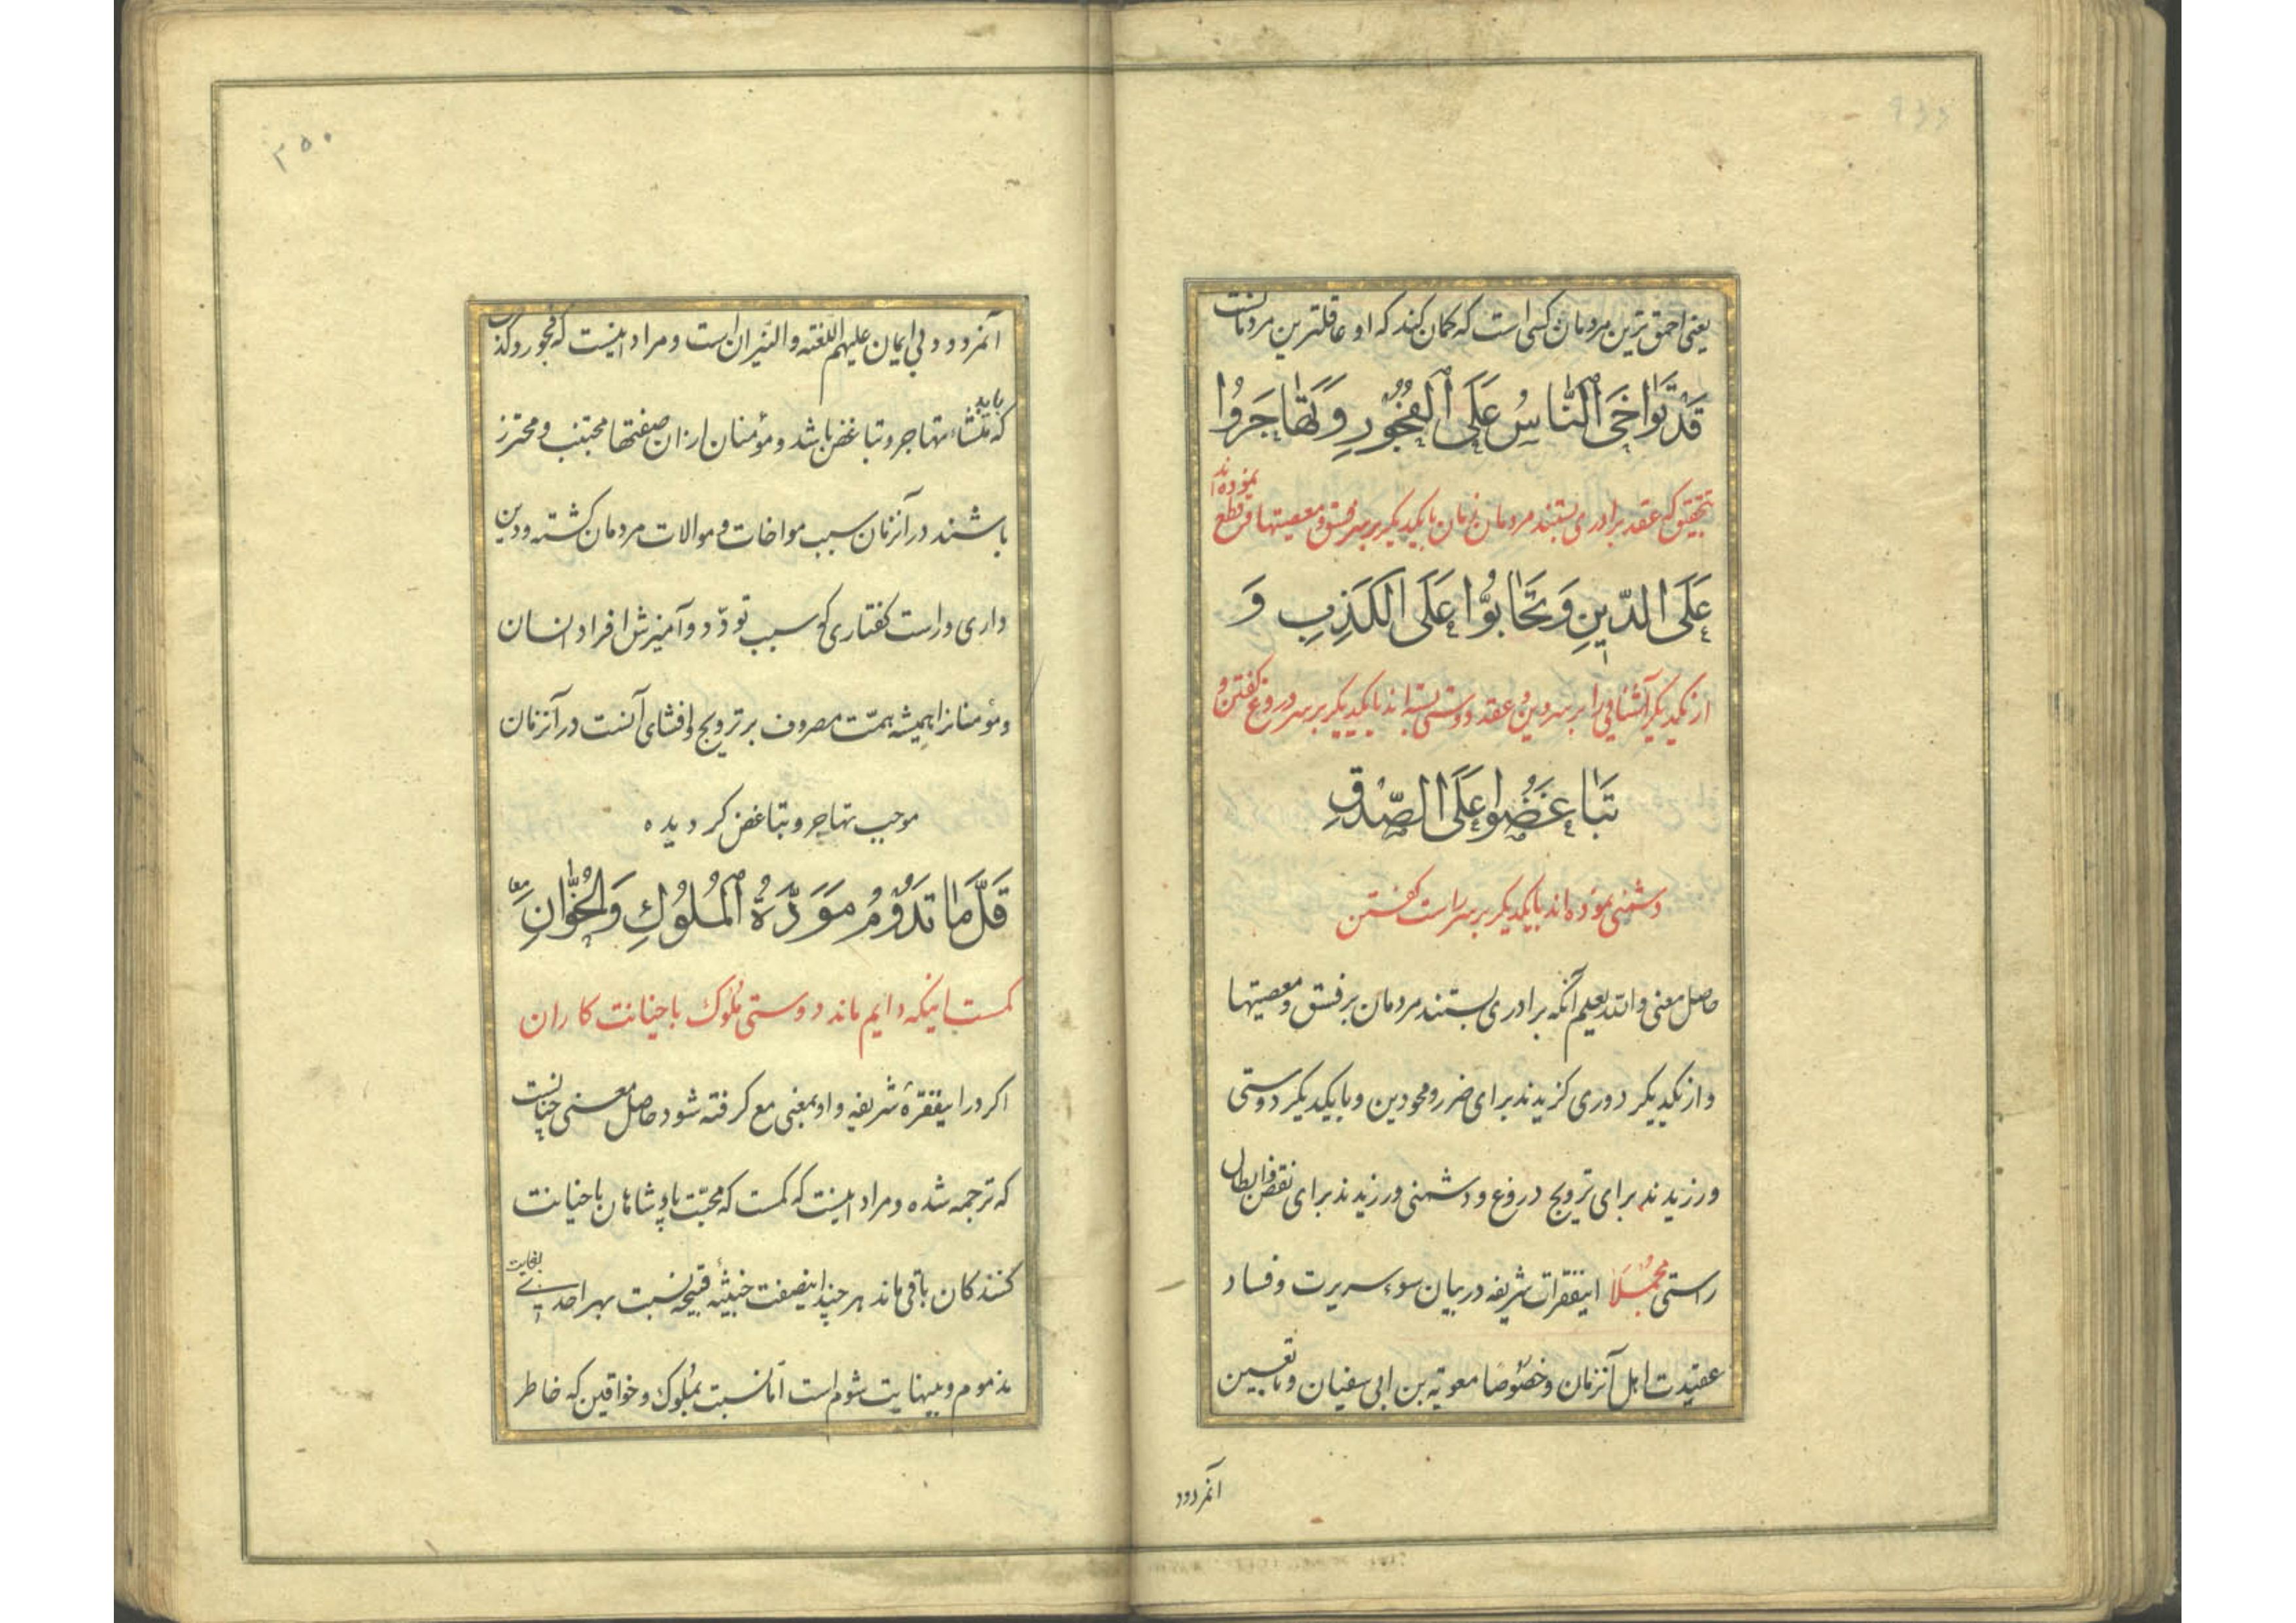 یعنی احمق ترین مردمان کسی است که کمان کند که او عاقلترین مردمانست
قَدْ تَوَاخَی النَّاسُ عَلَی الْفُجُورِ وَ تَهَاجَرُوا
بتحقیق که عقد برادری بستند مردمان زمان با یکدیکر بر سر فسق و معصیتها و قطع نموده اند
عَلَی الدّینِ وَ تَحَابُّوا عَلَی الْکَذِبِ وَ
از یکدیکر آشنائی را بر سر دین و عقد دوستی بسته اند با یکدیکر بر سر دروغ کفتن و
تَبَاغَضُوا عَلَی الصِّدْقِ
دشمنی نموده اند با یکدیکر بر سر راست کفتن
حاصل معنی والله یعلم آنکه برادری بستند مردمان بر فسق و معصیتها
و از یکدیکر دوری کزیدند برای ضرر و محو دین و با یکدیکر دوستی
ورزیدند برای ترویج دروغ و دشمنی ورزیدند برای نقض و ابطال
راستی مجملا اینفقرات شریفه در بیان سوء سریرت و فساد
عقیدت اهل آنزمان و خصوصا معویة بن ابی سفیان و تابعین
آنمردود
۳۵۰
آنمردود بی ایمان علیهم اللعنه و النیران است و مراد اینست که فجور و کذب
که باید منشاء تهاجر و تباغض باشد و مؤمنان از ان صفتها مجتنب و محترز
باشند در آنزمان سبب مواخات و موالات مردمان کشته و دین
داری و راست کفتاری که سبب تودد و آمیزش افراد انسان
و مؤمنانرا همیشه همت مصروف بر ترویج و افشای آنست در آنزمان
موجب تهاجر و تباغض کردیده
قَلَّ مَا تَدُومُ مَوَدَّةُ الْمُلُوكِ وَالْخُوَّانِ معا
کمست اینکه دایم ماند دوستی ملوك با خیانت کاران
اکر در اینفقرهٔ شریفه واو بمعنی مع کرفته شود حاصل معنی چنانست
که ترجمه شده و مراد اینست که کمست که محبت پادشاهان با خیانت
کنندکان باقی ماند هر چند اینصفت خبیثهٔ قبیحه نسبت بهر احدی بغایت
مذموم و بینهایت شوم است اما نسبت بملوك و خواقین که خاطر